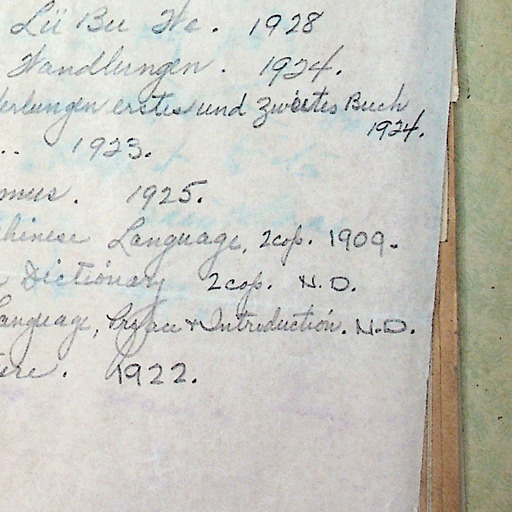 Lü Bu We. 1928
Wandlungen. 1924.
erstes und zweites Buch
1924.
.. 1923.
mus. 1925.
hinese Language, 2cop. 1909.
Dictionary 2cop. N.D.
anguage, Preface & Introduction. N.D.
ure. 1922.